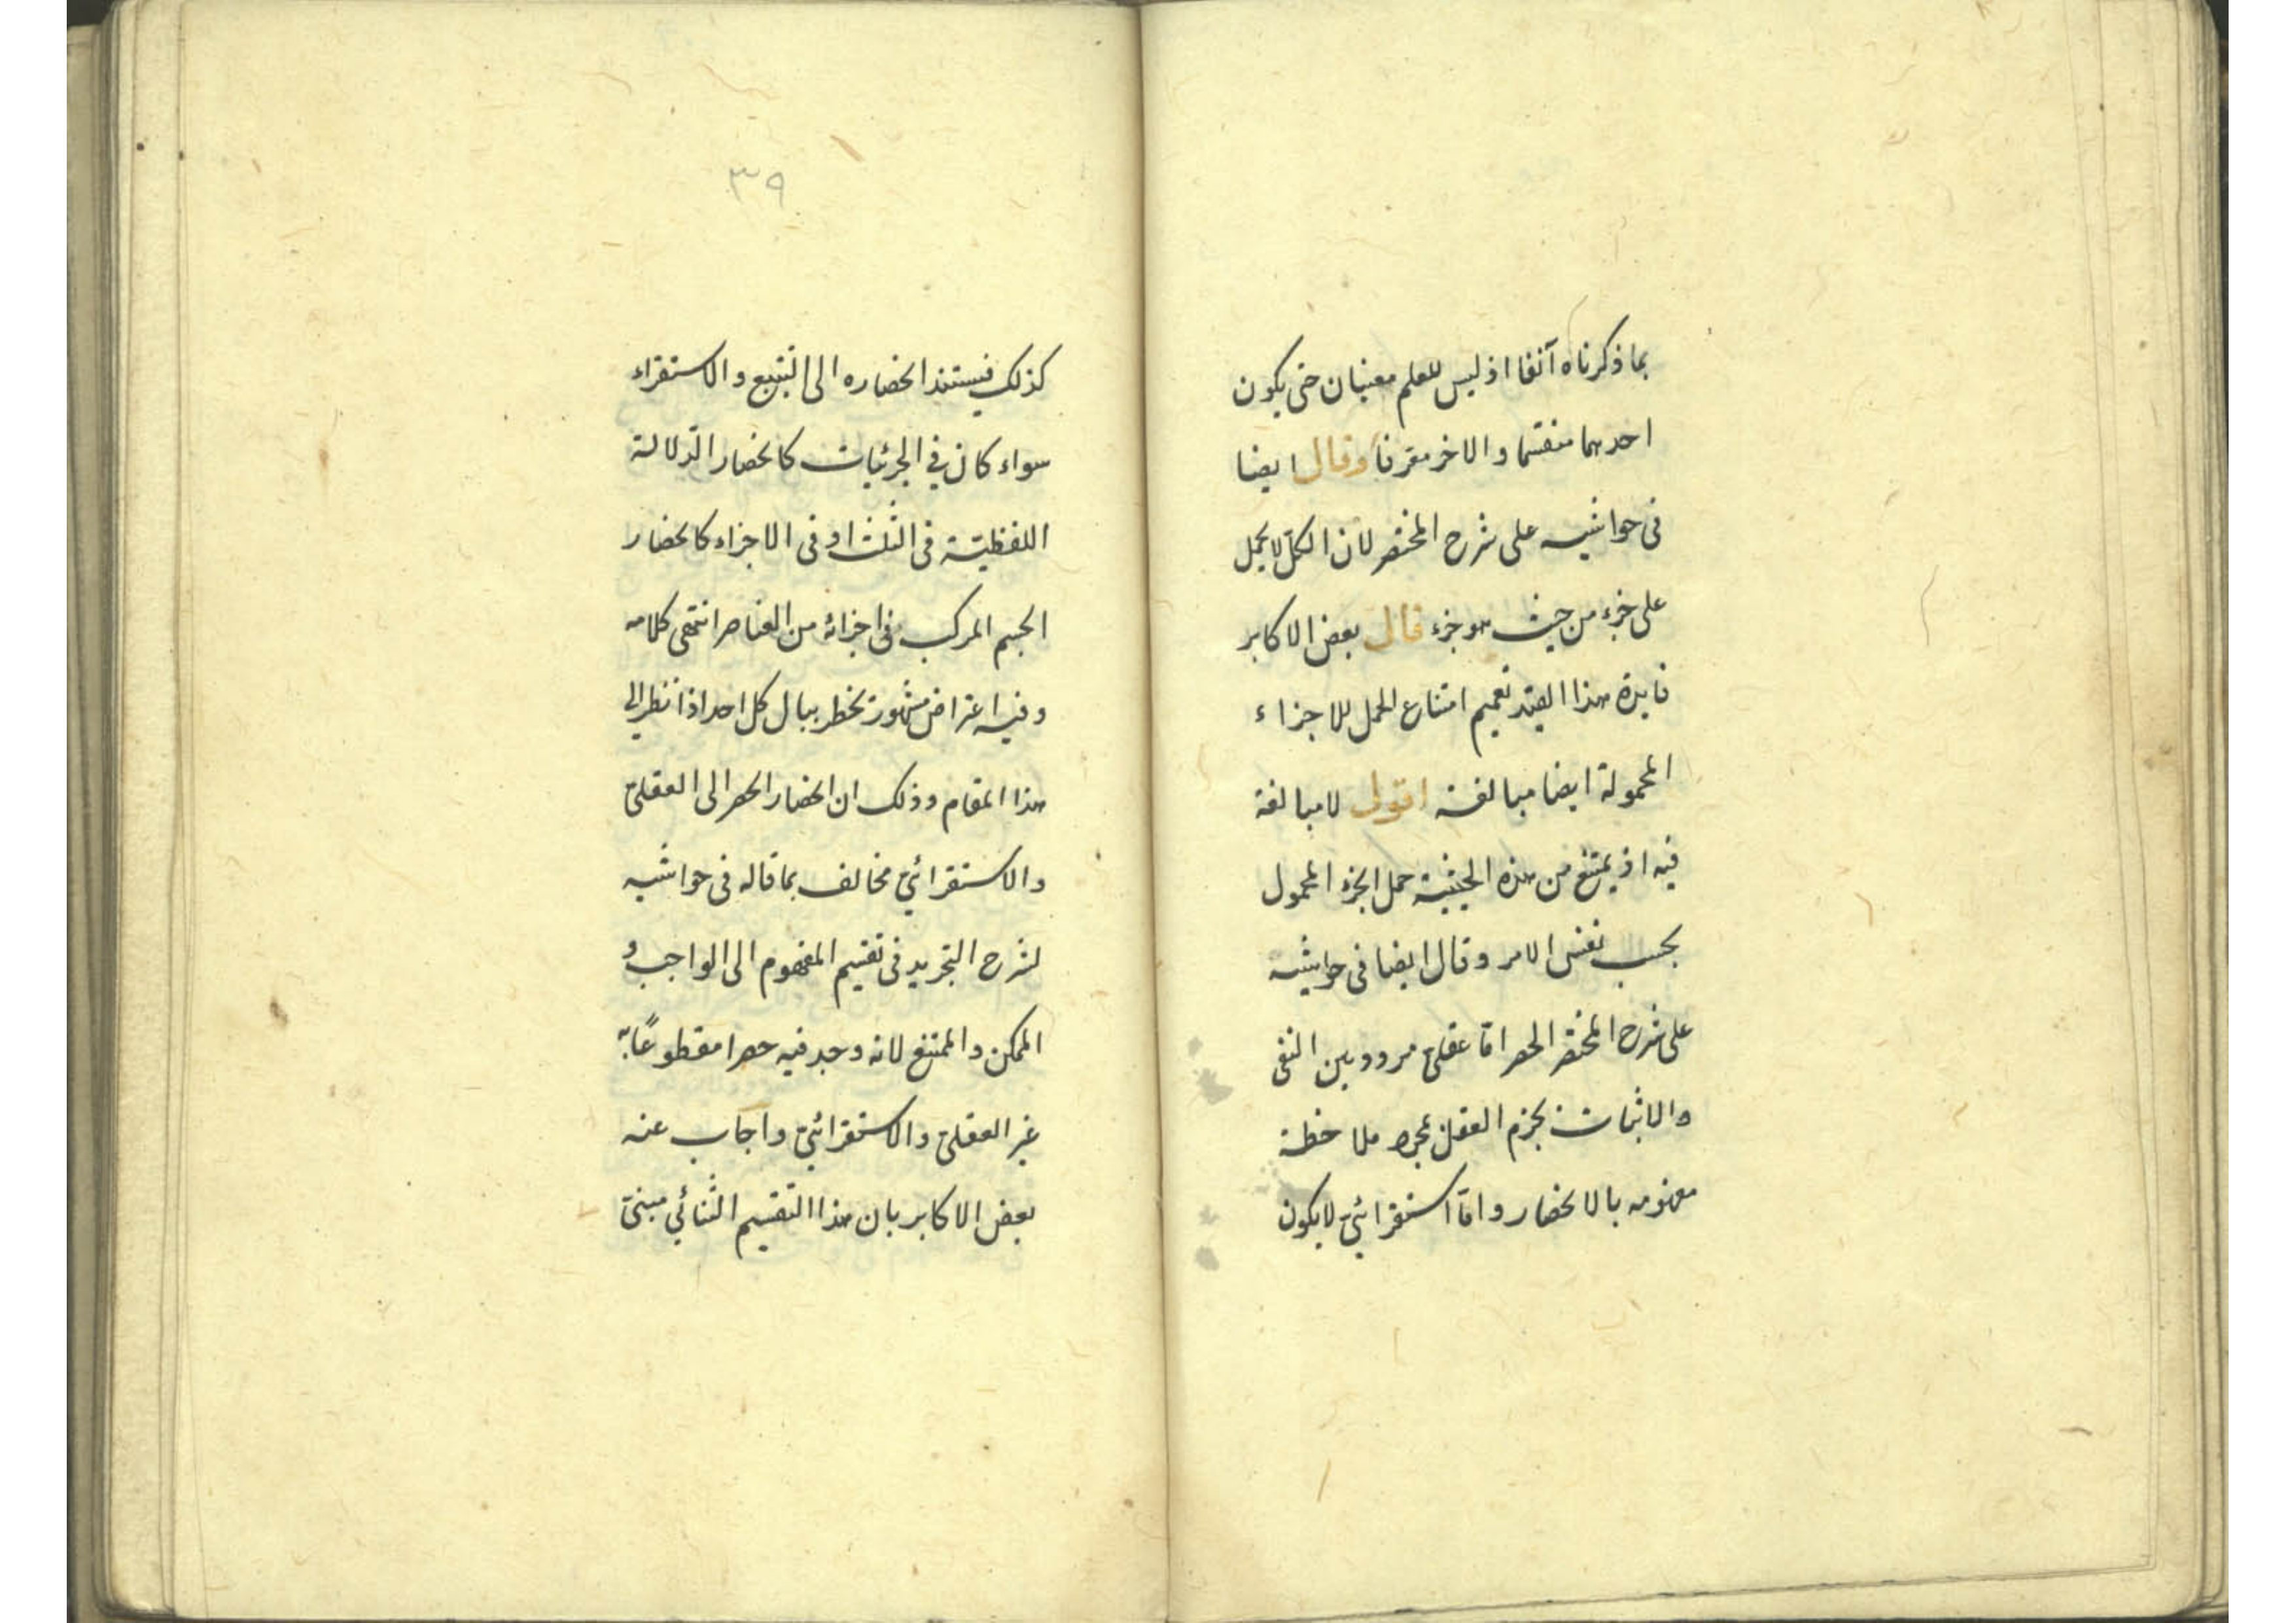 بما ذكرناه آنفا اذ ليس للعلم معنيان حتى يكون
احدهما منقسما والاخر معرفا وقال ايضا
فى حواشيه على شرح المختصر لان الكل لا يحمل
على جزء من حيث هو جزء قال بعض الاكابر
فايدة هذا القيد تعميم امتناع الحمل للاجزاء
المحمولة ايضا مبالغة اقول لا مبالغة
فيه اذ يمتنع من هذه الحيثية حمل الجزء المحمول
بحسب نفس الامر وقال ايضا فى حواشيه
على شرح المختصر الحصر اما عقلىّ مردد بين النفى
والاثبات يجزم العقل بمجرد ملاحظة
مفهومه بالانحصار وامّا استقرائىّ لا يكون
٣٩
كذلك فيستند انحصاره الى التتبع والاستقراء
سواء كان فى الجزئيات كانحصار الدّلالة
اللفظيّة فى الثلث او فى الاجزاء كانحصار
الجسم المركب فى اجزائه من العناصر انتهى كلامه
وفيه اعتراض مشهور يخطر ببال كل احد اذا نظر الى
هذا المقام وذلك ان انحصار الحصر الى العقلىّ
والاستقرائىّ مخالف بما قاله فى حواشيه
لشرح التجريد فى تقسيم المفهوم الى الواجب و
الممكن والممتنع لانه وجد فيه حصرا مقطوعًا به
غير العقلىّ والاستقرائىّ واجاب عنه
بعض الاكابر بان هذا التّقسيم الثّنائي مبنىّ